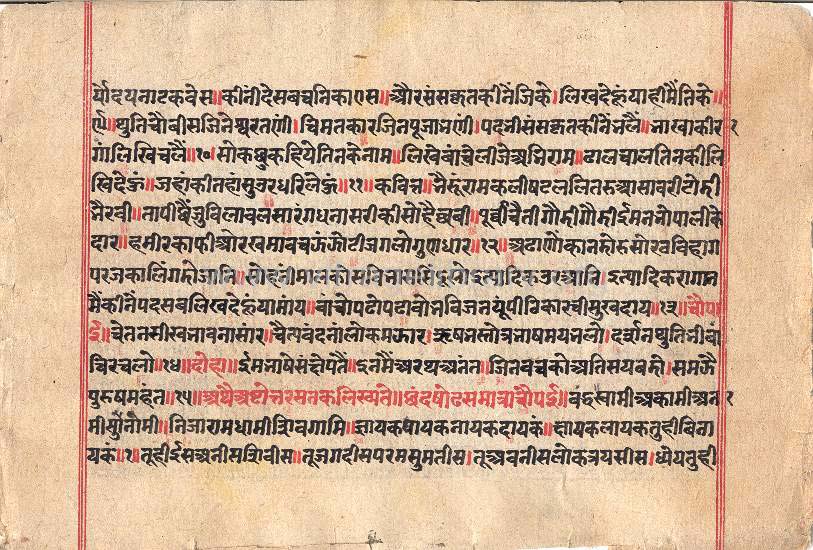 र्योदयनाटकवेस॥कीनीदेसबचनिकाएस॥औरसंसकृतकीनैंजिके।लिखदेहूंयाहीमैंतिके॥
९॥थुतिचौवीसजिनेश्वरतणीं।चिमतकारजिनपूजाभणीं।पदभीसंसकृतकीनेंभलैं।भाखाकीर
गांलिखिचलैं॥१०॥सोकछुकहियेतिनकेनाम॥लिखेबांचेलीजेअभिराम॥टालचालतिनकीलि
खिदेऊं॥जहांकीतहांमुत्रधरिलेऊं॥११॥कवित्त॥भैरूंरामकलीषटललितरुआसावरीटोडी
भैरवी॥नापीछैंजुविलावलसारंगधनासरीकीसोहैछवी॥पूर्वीचैतीगौडीगौडीईमनभोपालीके
दार॥हमीरकाफीऔरखमावचऊंऊंटीजगलोगुणधार॥१२॥अटाणोंकानडोरुसोरठविहाग
परजकालिंगडोजानि॥सोहनीमालकोसविभासहिंदूलोइत्यादिकउरआनि।इत्यादिकरागान
मैंकीनेंपदसबलिखदेहूंयामांय॥बांचोपढोपढावोभविजनसूंपीनिकारचीसुखदाय॥१३॥चौप
ई॥चेतनसीखभावनासार।चैत्यवंदनालोकमऊार।ऋषभस्तोत्रभाषमयभलो।दर्शनथुतिभीबां
चिरचलो॥१४॥दोहा॥ईमभाषेसंछेपतैं॥इनमैंअरथअनंत॥जिनवचकोअतिसयबडो।समऊै
पुरुषमहंत॥१५॥अथैअष्टोत्तरसतकलिख्यते॥छंदपोढसमात्राचौपई॥वंदूस्वामीअकामीअन
मीर्मुनोमी।निजारामधामीशिवगामि॥ज्ञायकपायकनायकदायकं॥ज्ञायकलायकतुहीविना
यकं॥१॥तूहीईसअनीसशिवीस॥तूजगदीमपरमसुमतीस।तूअवनीसलोकत्रयसीस।ध्येयतुही